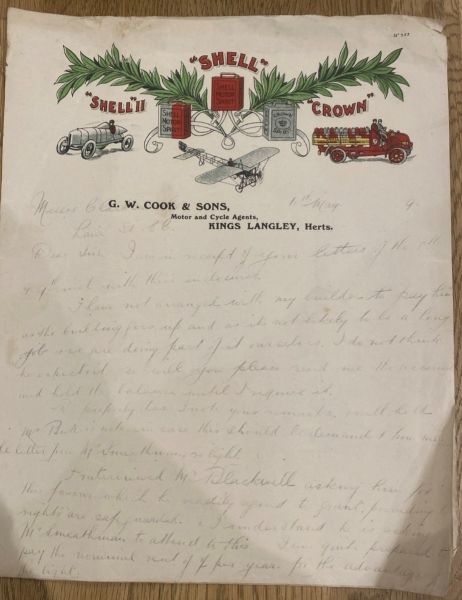 "SHELL"
"SHELL" II
"CROWN"
SHELL MOTOR SPIRIT
SHELL MOTOR SPIRIT
G. W. COOK & SONS,
Motor and Cycle Agents,
KINGS LANGLEY, Herts.
11th May 19
Dear Sirs I am in receipt of your letters of the 8th
& 9th inst with their enclosures.
I have not arranged with my builder to pay him
as the building goes up and as it is not likely to be a long
job & we are doing part of it ourselves. I do not think
he expects it so will you please send me the
and hold the balance until I require it.
property tax I note your remarks, will
Mr in case this should be demanded
letter from Mr Smeathman, re light.
I interviewed Mr Blackwell asking him for
this favour which he readily agreed to grant, providing
rights are safeguarded. I understand he is asking
Mr Smeathman to attend to this. I am quite prepared to
pay the nominal rent of per year for the advantage of
the light.